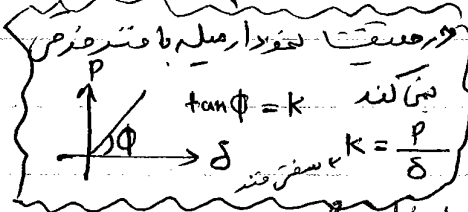 در حقیقت نمودار میله با فنر فرقی
نمی‌کند
P
tan Φ = K
Φ
δ
K = P/δ
سفتی فنر